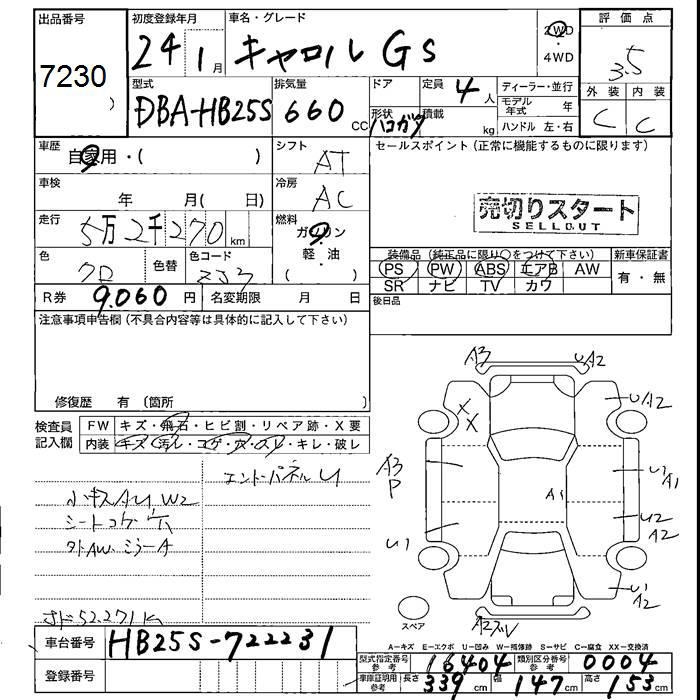 出品番号 初度登録年月 車名・グレード 2WD・4WD 評価点
7230 24 1月 キャロル GS 3.5
型式 排気量 ドア 定員 4人 ディーラー・並行 外装 内装
DBA-HB25S 660 CC 形状 ハコガタ 積載 kg モデル年式 年 C C
ハンドル 左・右
車歴 自家用・( ) シフト AT セールスポイント(正常に機能するものに限ります)
車検 年 月( 日) 冷房 AC
売切りスタート
SELLOUT
走行 5万2千270km 燃料 ガソリン
軽・油
( )
色 クロ 色替 色コード ZJ3
装備品(純正品に限り○をつけて下さい) 新車保証書
PS PW ABS エアB AW 有・無
SR ナビ TV カワ
R券 9,060円 名変期限 月 日 後日品
注意事項申告欄(不具合内容等は具体的に記入して下さい)
修復歴 有 (箇所 )
検査員記入欄 FW キズ・飛石・ヒビ割・リペア跡・X要
内装 キズ・汚レ・コゲ・穴・スレ・キレ・破レ
エンドパネル U
小キズAU W2
シートコゲ 穴
外AW. ミラーA
52,271K
車台番号 HB25S-722231
登録番号
A3 UA2
X X U/A2
A3 P A1 U1 A1
U2 A2
U1 U1 A2
スペア
A−キズ E−エクボ U−凹み W−補修跡 S−サビ C−腐食 XX−交換済
型式指定番号 参考 16404 類別区分番号 参考 0004
車庫証明用 参考 長さ 339cm 幅 147cm 高さ 153cm